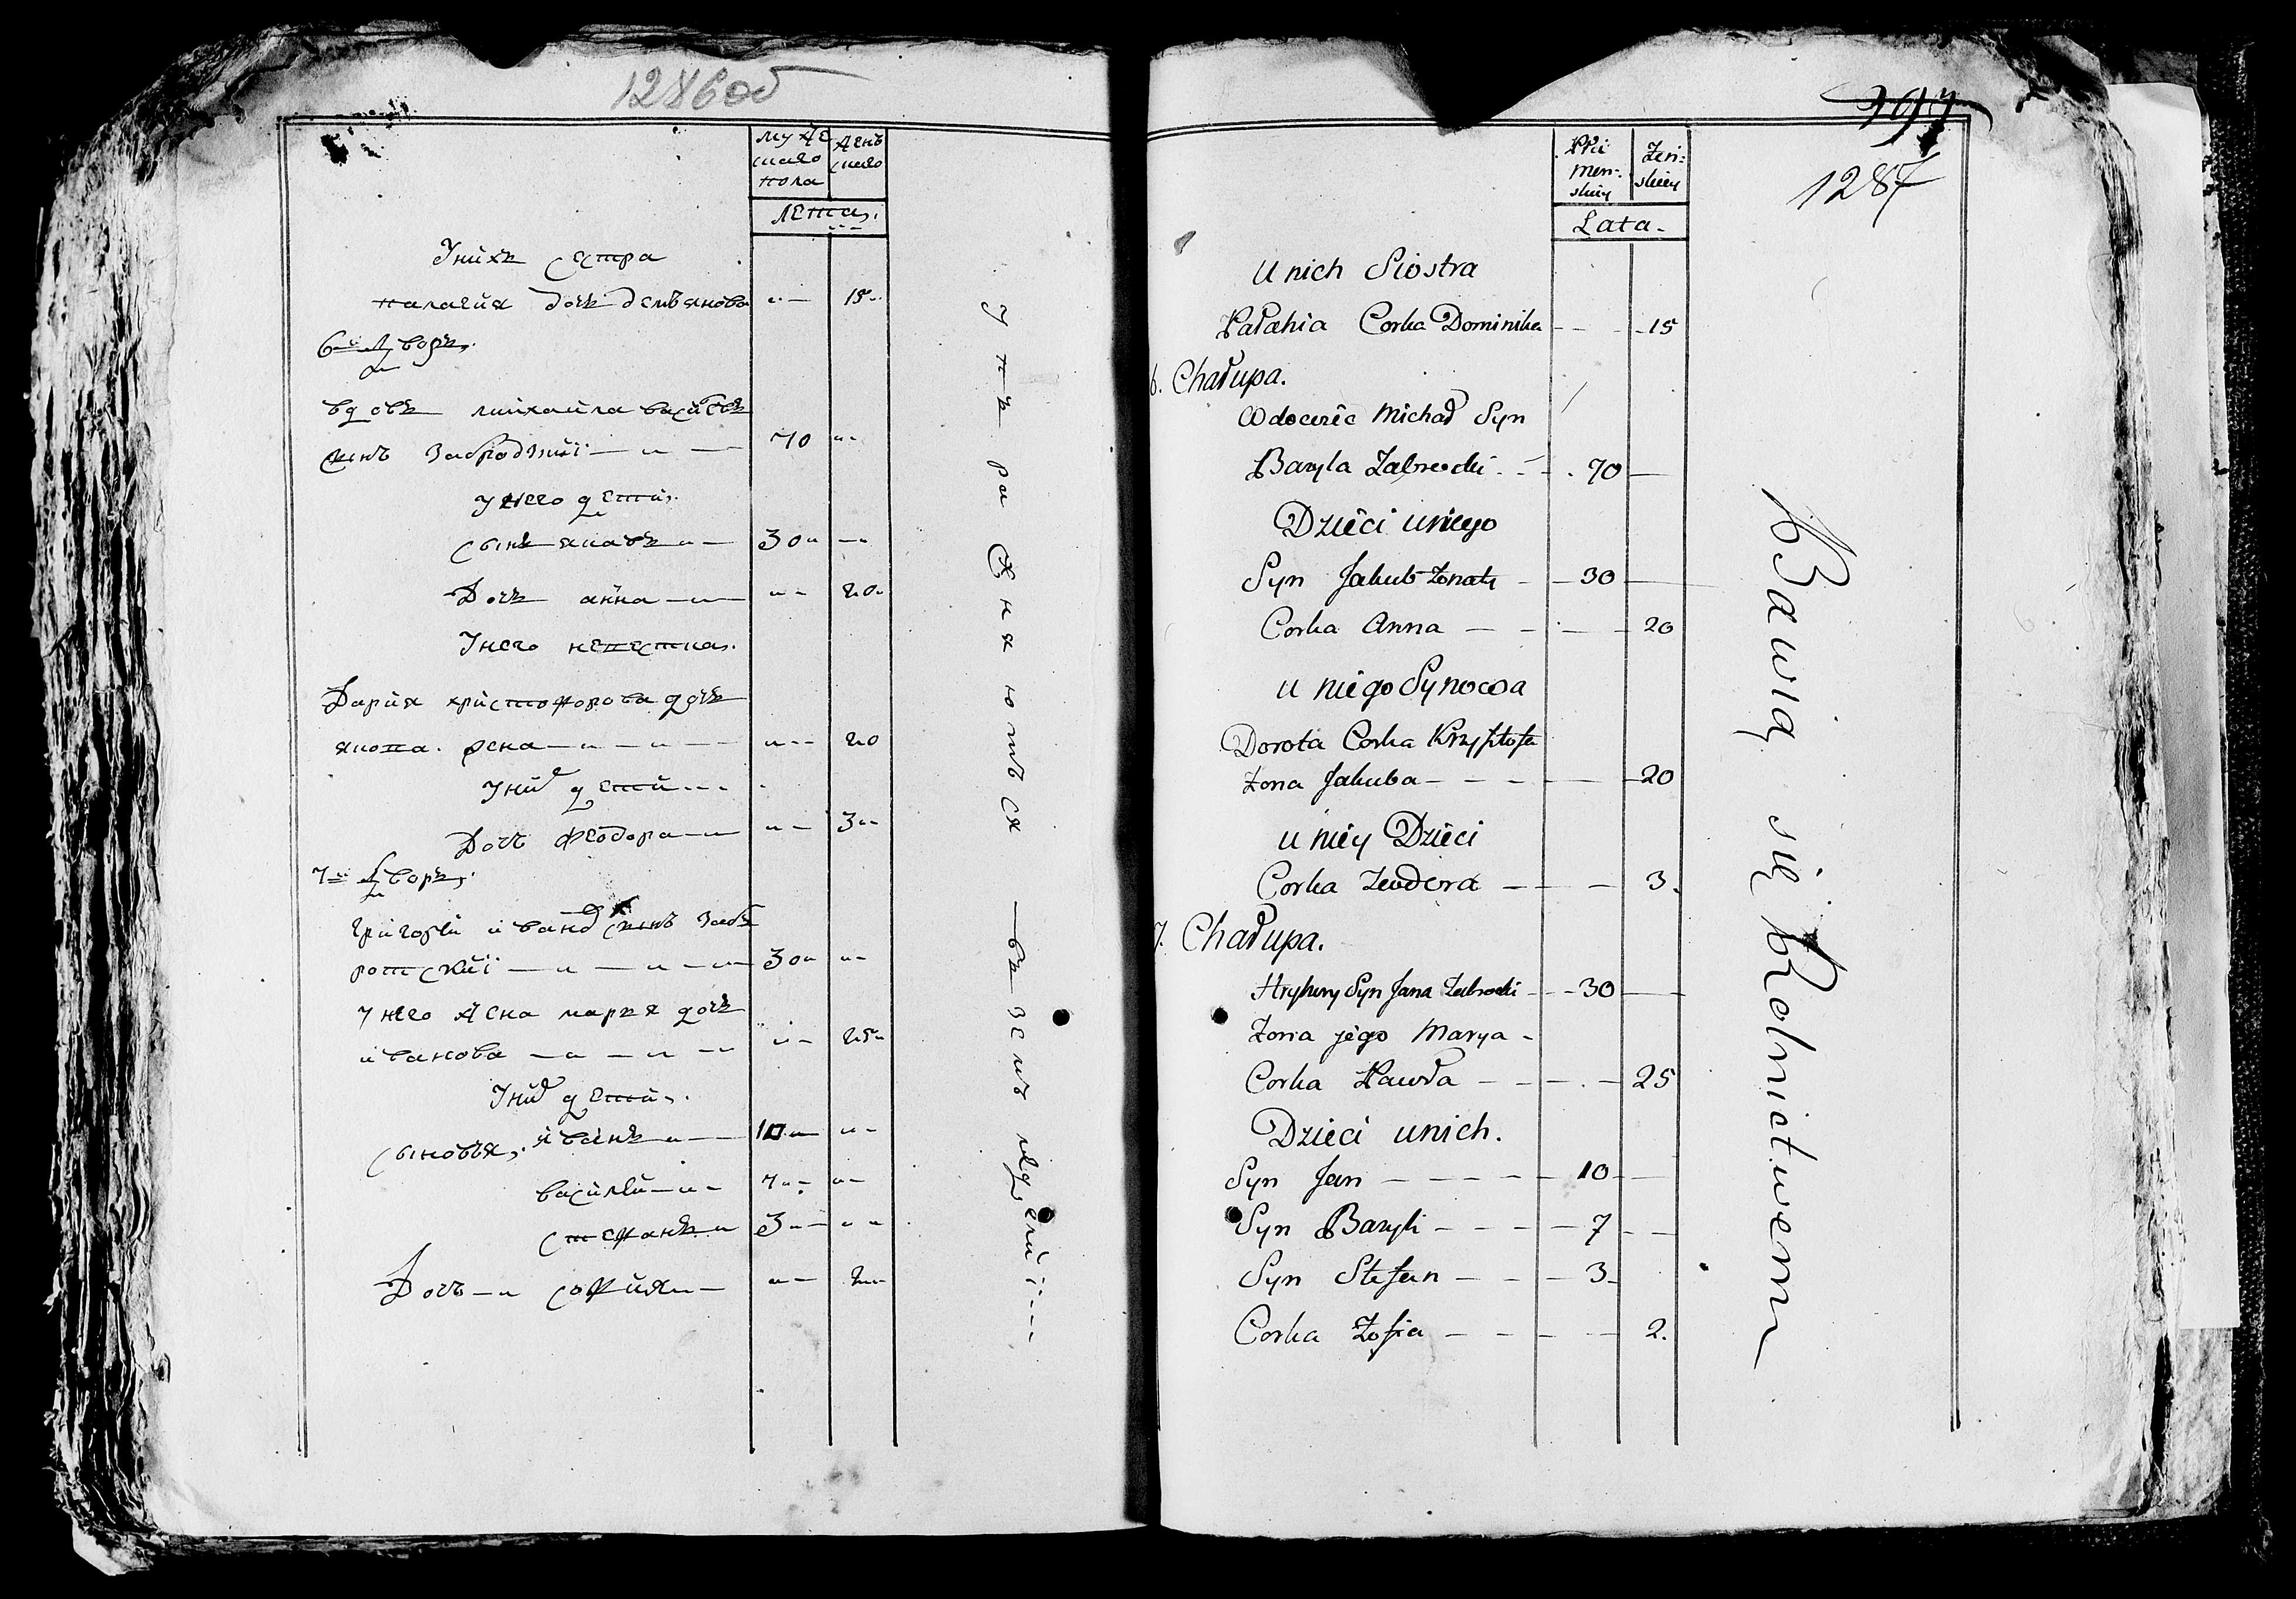 1286об
муже
скаго
пола
женъ
скаго
лета.
У нихъ сестра
палагия дочь демъянова " — 15 "
6 й дворъ.
вдовъ михайла васильевъ
сынъ Забродзкий — " — 70 "
У него дети.
сынъ якавъ " — 30 " —
Дочь анна — " — " — 20 "
У него невестка.
Дария христофорова дочь
жена — " — " — " — 20
У ний дети
Дочь феодора — " " — 3 "
7 й дворъ.
григорий иванов сынъ Заб
ротский — " — " — " — 30 " " —
У него жена мария дочь
иванова — " — " — " " — 25 "
У них дети.
сыновья, иванъ " — 10 " — " —
василей — " — 7 " — " —
степанъ " 3 " — " "
Дочь — " софия " — " — 2 "
упражняются въ земледелии
1287
Płci
Men-
skiey
Żeń-
skiey
Lata.
U nich Siostra
Pałahia Corka Dominika - - - 15
6. Chałupa.
Wdowiec Michał Syn
Bazyla Zabrocki - - - 70 —
Dzieci u niego
Syn Jakub Żonaty - - 30 —
Corka Anna — - - — - 20
u niego Synowa
Dorota Corka Krzysztofa
Żona Jakuba - - - - — - 20
u niey Dzieci
Corka Teodora — - - 3.
7. Chałupa.
Hryhory Syn Jana Zabrocki - - 30 —
Żona jego Marya -
Corka Pawła — - - - 25
Dzieci u nich.
Syn Jan — - - - - 10 —
Syn Bazyli - - - - 7 - —
Syn Stefan - - - 3 -
Corka Zofia — - - - 2.
Bawią się Rolnictwem